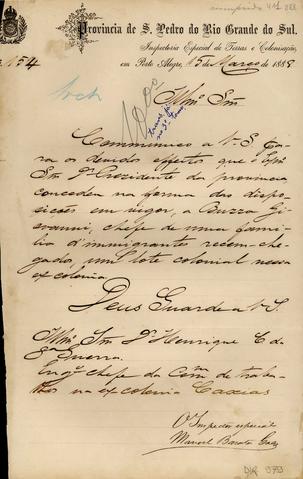 Provincia de S. Pedro do Rio Grande do Sul.
Inspectoria Especial de Terras e Colonisação,
154
em Porto Alegre, 15 de Março de 1888
Illmº Snr
Communico a V. S. pa
ra os devidos effeitos que o Exmº
Snr Dr Presidente da provincia
concedeu na forma das dispo
sições em vigor, a Buzza Gio
vanni, chefe de uma fami
lia d'immigrantes recem-che
gados, um lote colonial nessa
ex colonia.
Deus Guarde a V. S.
Illmº Snr Dr Henrique C da
Guerra.
Engº chefe da Comm de traba
lhos na ex colonia Caxias
O Inspector especial
Manoel Barata